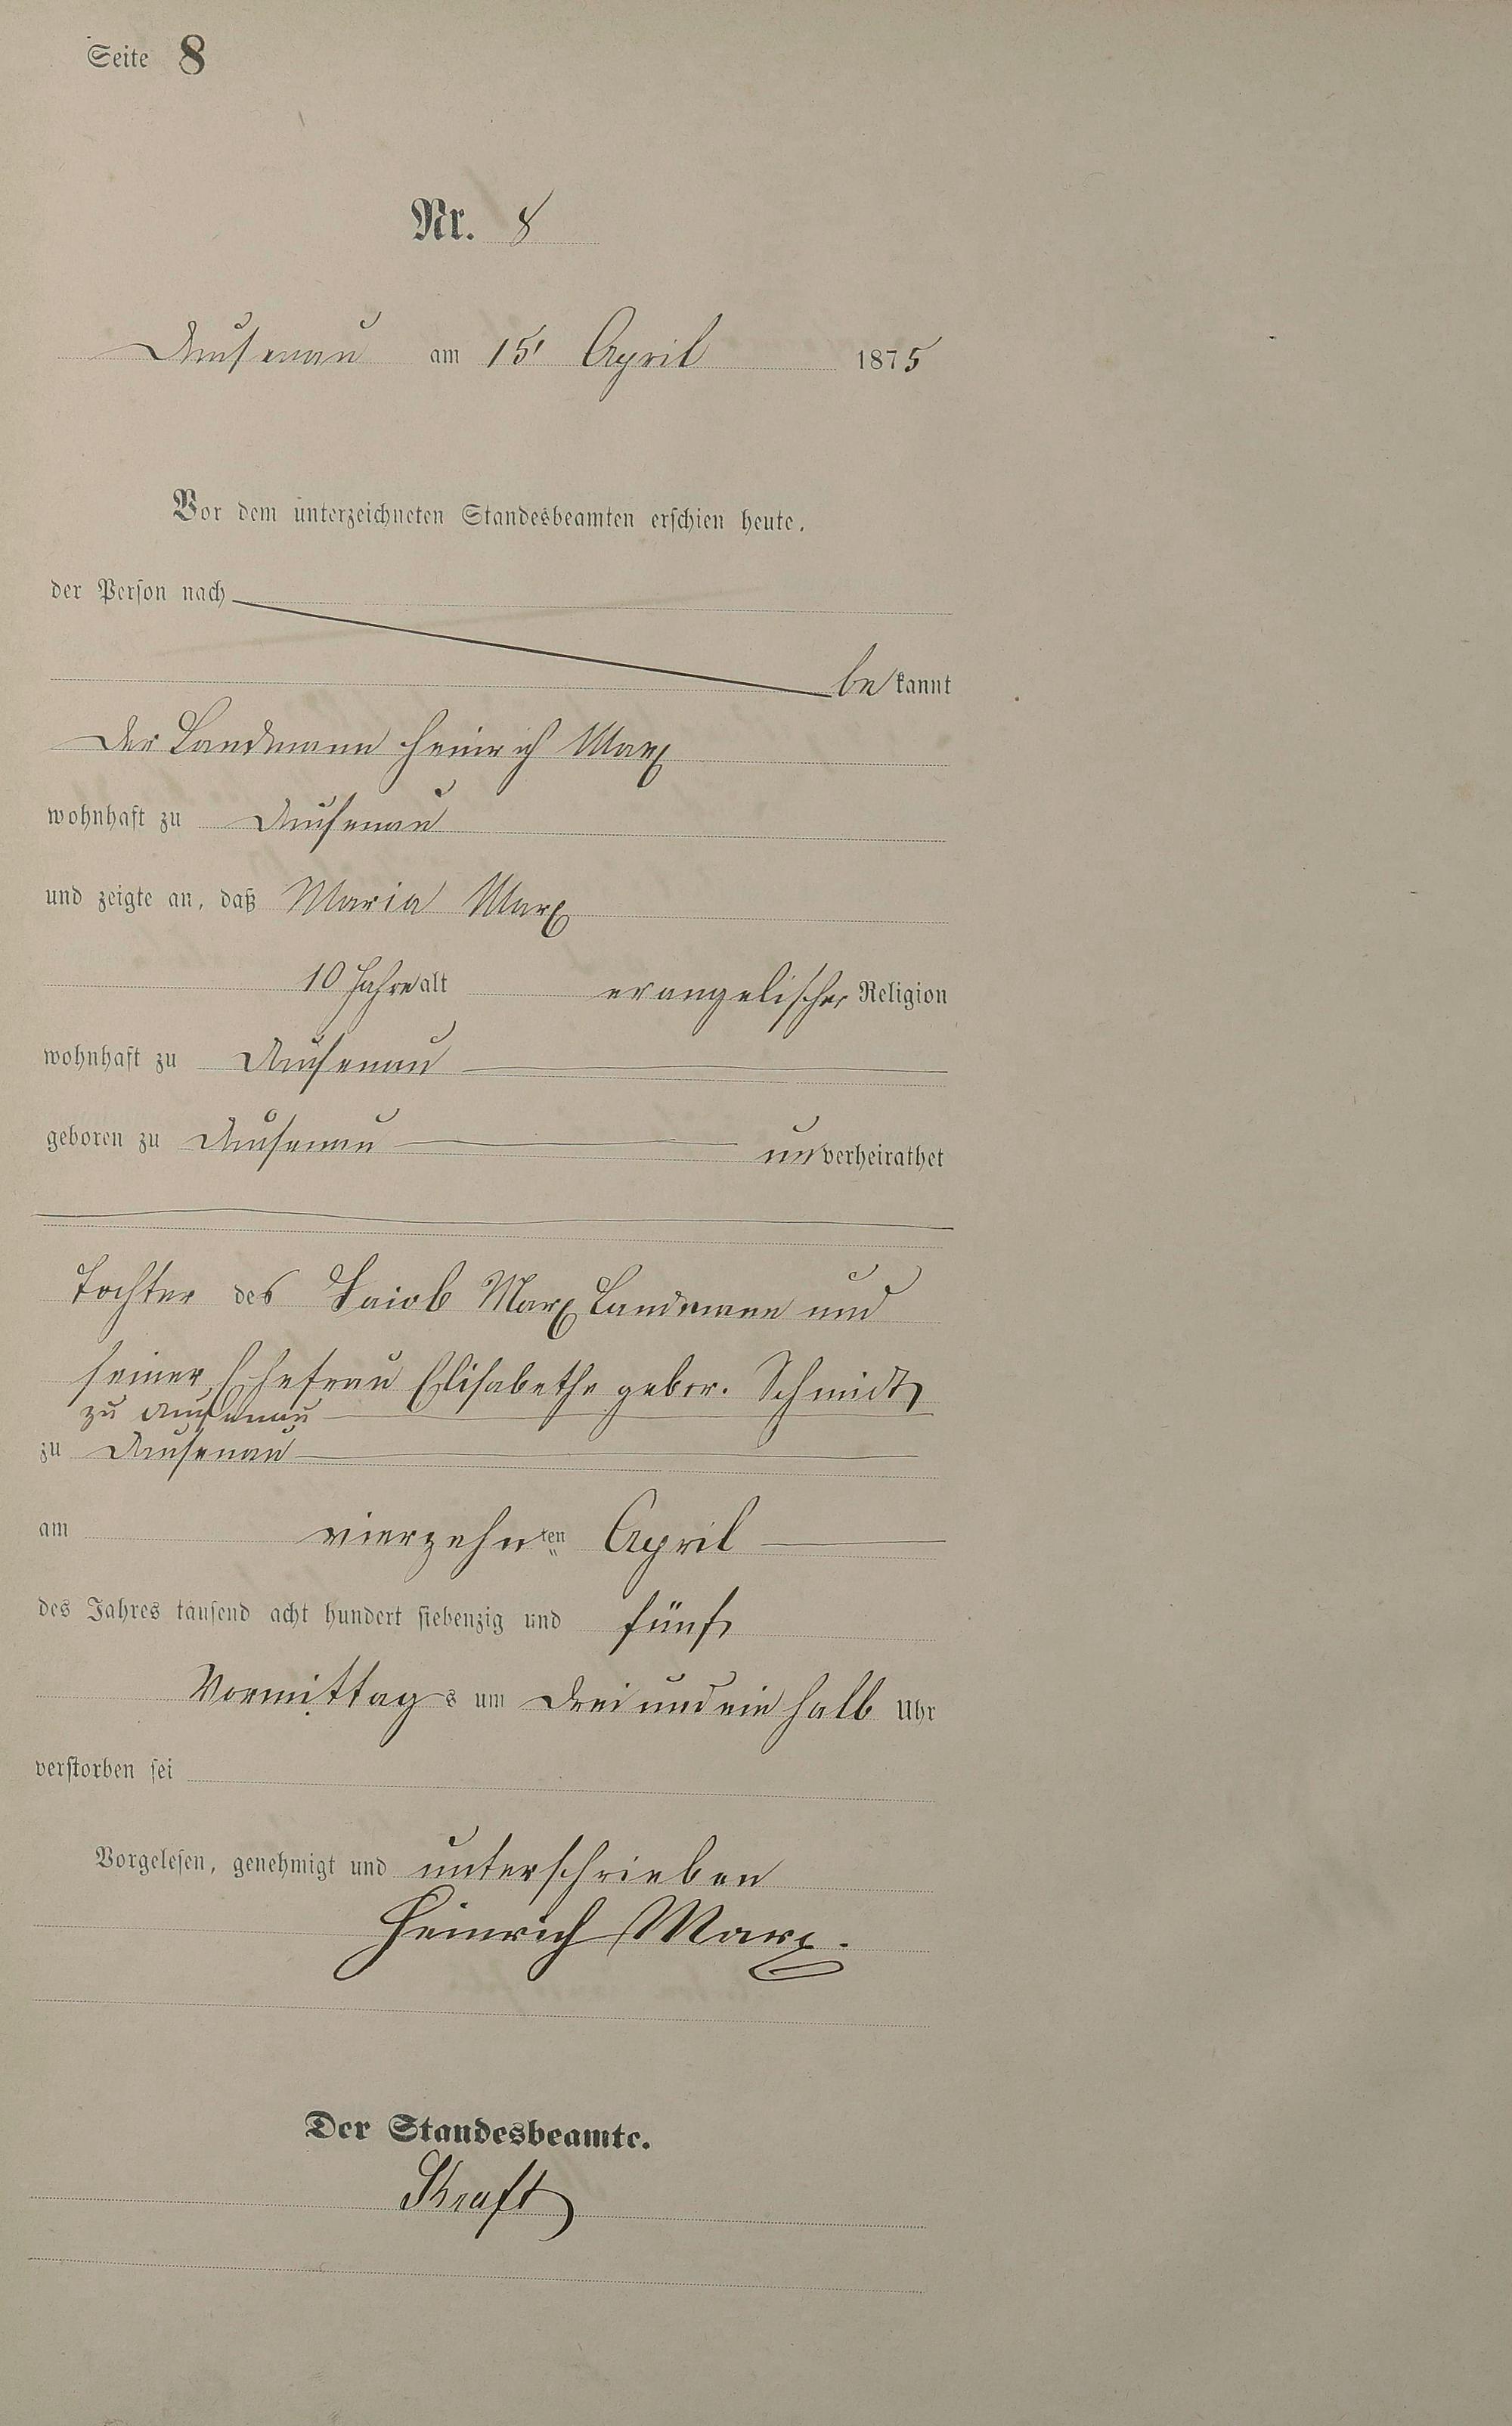 Seite 8
Nr. 8
Dausenau am 15' April 1875
Vor dem unterzeichneten Standesbeamten erschien heute,
der Person nach
bekannt
Der Landmann Heinrich Marx
wohnhaft zu Dausenau
und zeigte an, daß Maria Marx
10 Jahre alt evangelischer Religion
wohnhaft zu Dausenau
geboren zu Dausenau unverheirathet
Tochter des Jacob Marx Landmann und
seiner Ehefrau Elisabethe gebor. Schmidt
zu Dausenau
zu Dausenau
am vierzehnten April
des Jahres tausend acht hundert siebenzig und fünf
Vormittags um drei und ein halb Uhr
verstorben sei
Vorgelesen, genehmigt und unterschrieben
Heinrich Marx.
Der Standesbeamte.
Kraft